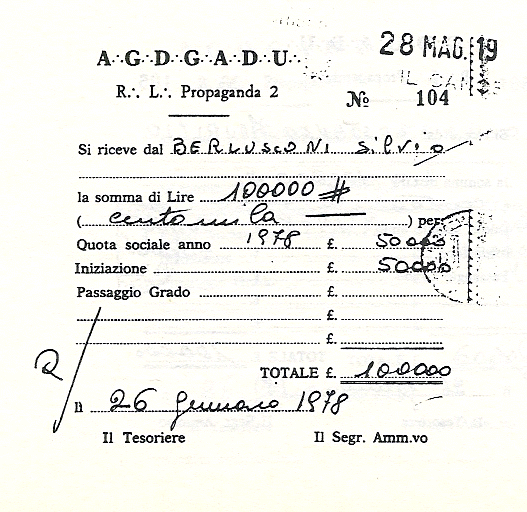 28 MAG. 19
A∴G∴D∴G∴A∴D∴U∴
IL CAN
R∴ L∴ Propaganda 2
No 104
Si riceve dal BERLUSCONI Silvio
la somma di Lire 100000 #
( centomila ) per:
Quota sociale anno 1978 £. 50000
Iniziazione £. 50000
Passaggio Grado £.
£.
£.
TOTALE £. 100000
lì 26 Gennaio 1978
Il Tesoriere Il Segr. Amm.vo